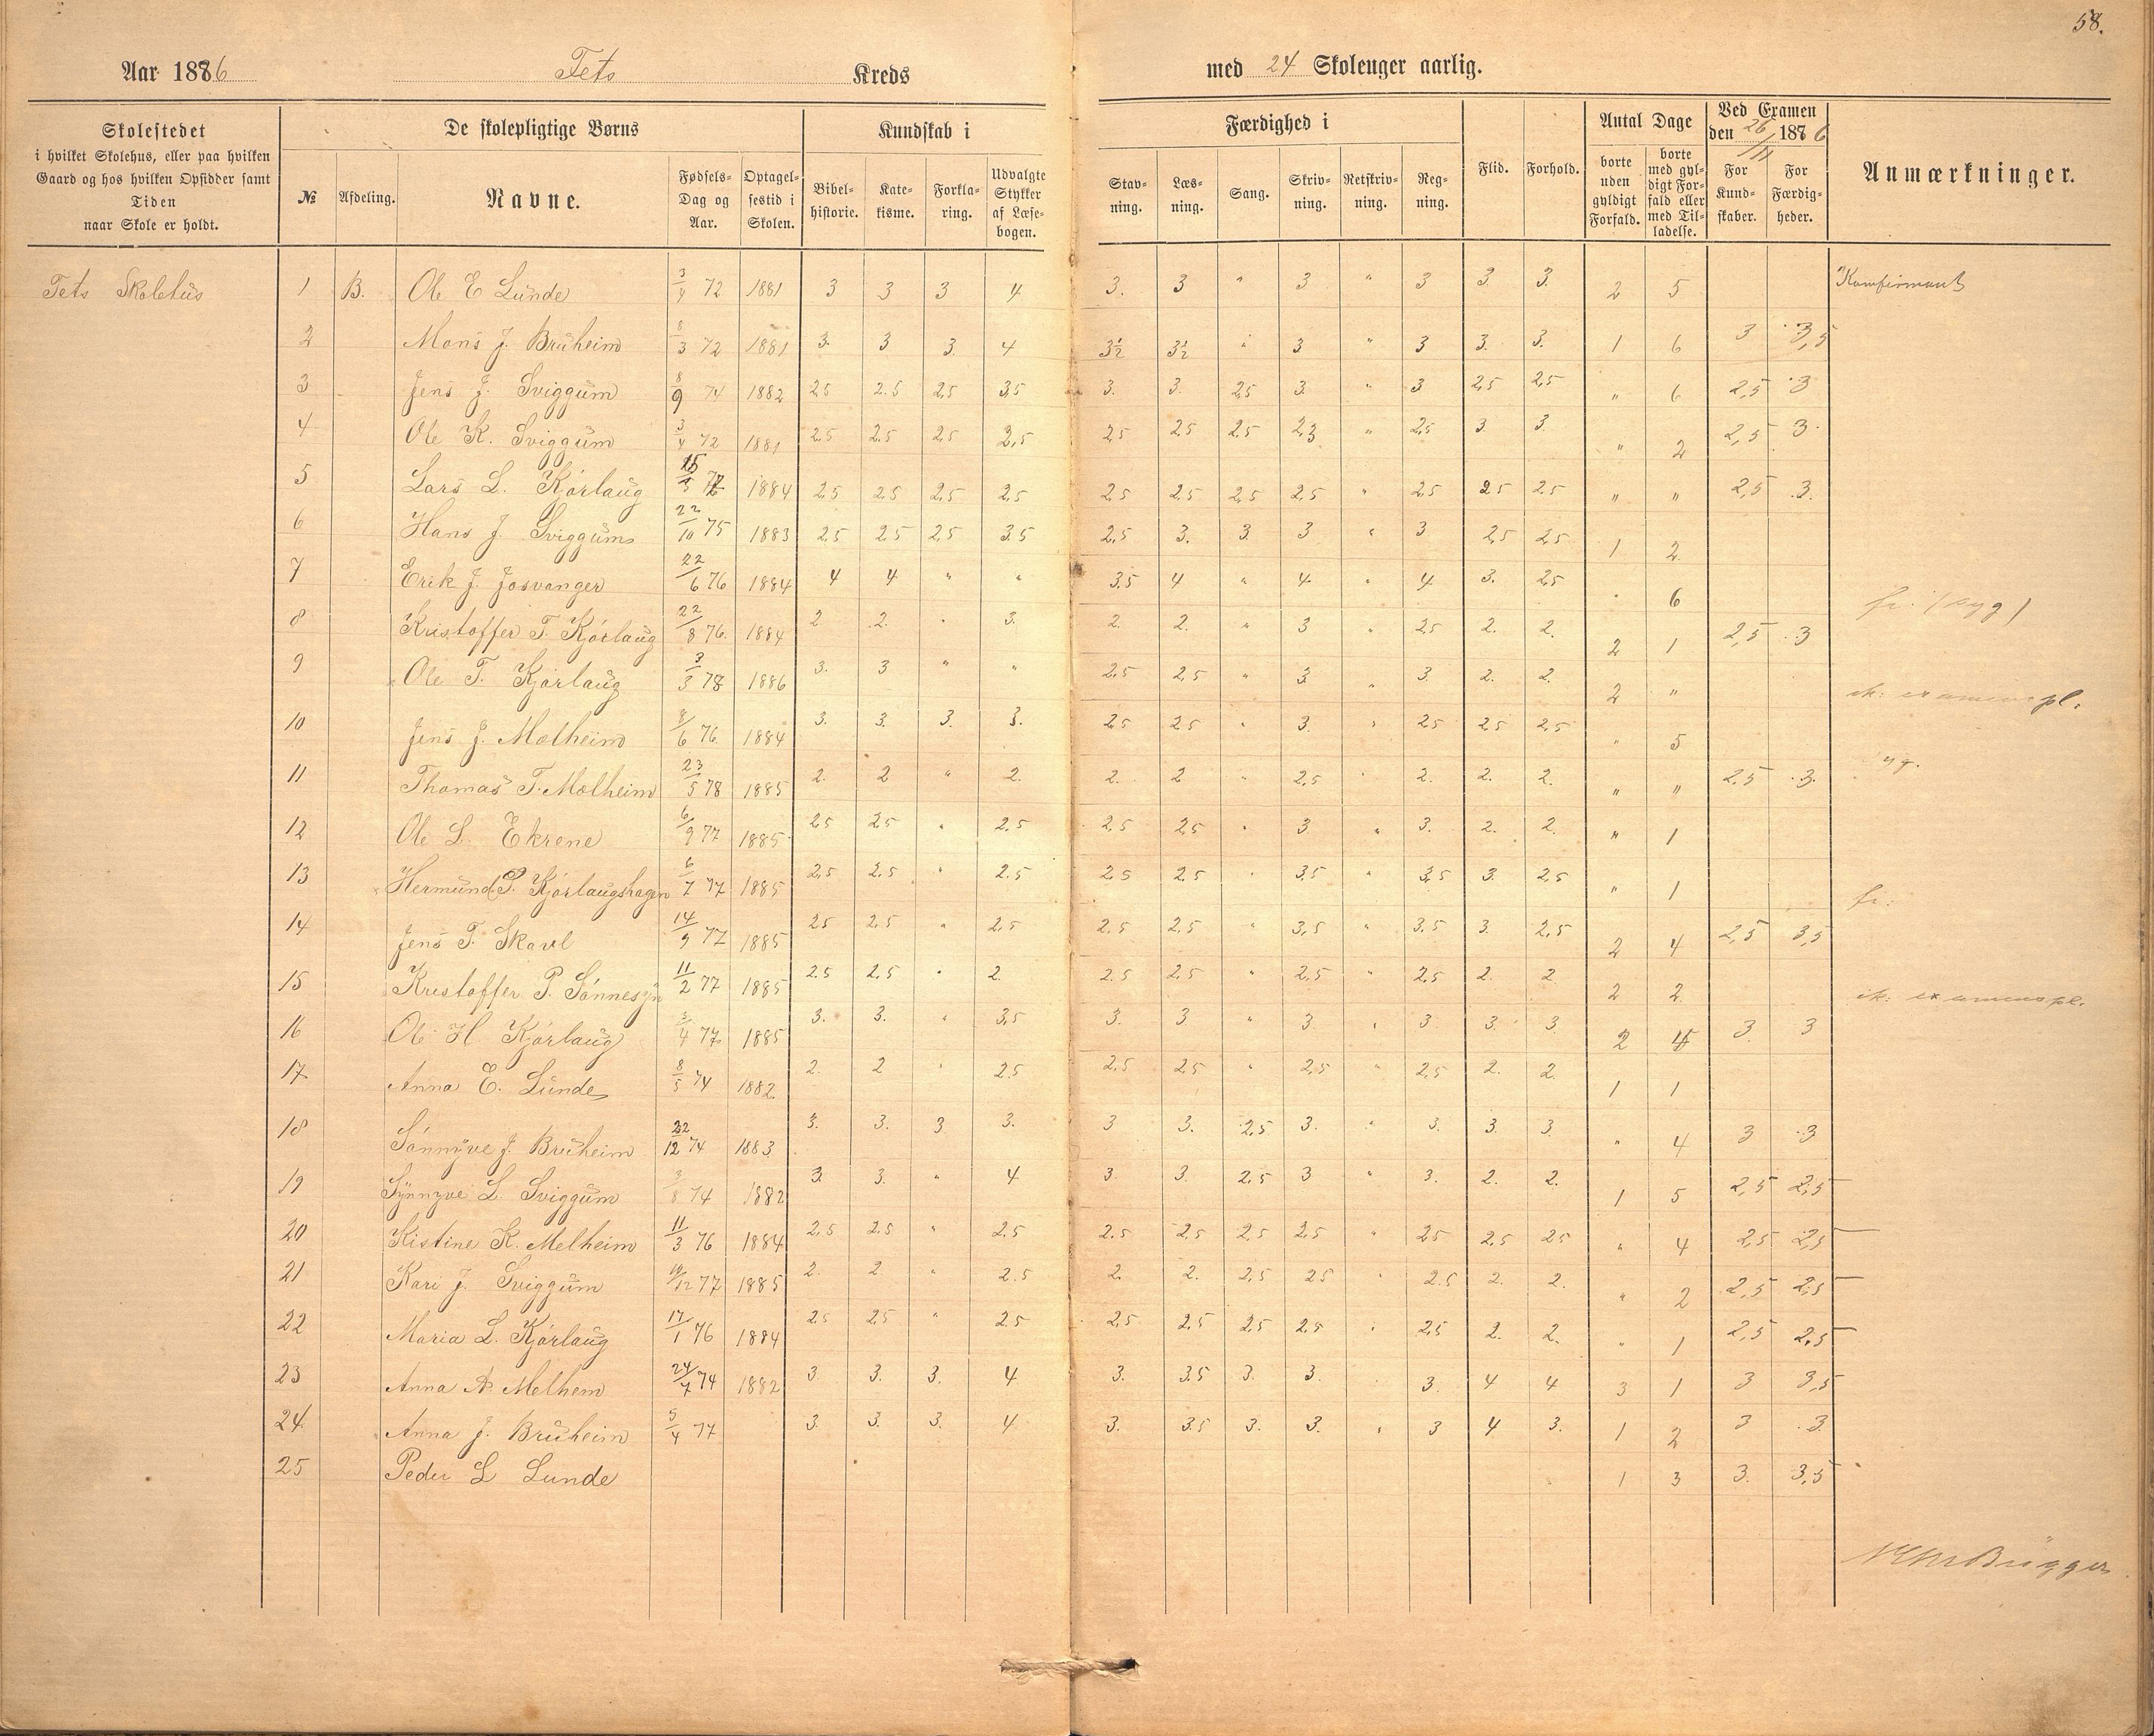 58.
Aar 1886 Fets Kreds med 24 Skoleuger aarlig.
Skolestedet i hvilket Skolehus, eller paa hvilken Gaard og hos hvilken Opsidder samt Tiden naar Skole er holdt.
De skolepligtige Børns
№ Afdeling. Navne. Fødsels-Dag og Aar. Optagelsestid i Skolen.
Kundskab i
Bibelhistorie. Katekisme. Forklaring. Udvalgte Stykker af Læsebogen.
Færdighed i
Stavning. Læsning. Sang. Skrivning. Retskrivning. Regning.
Flid. Forhold.
Antal Dage
borte uden gyldigt Forfald. borte med gyldigt Forfald eller med Tilladelse.
Ved Examen den 26/11 1886
For Kundskaber. For Færdigheder.
Anmærkninger.
Fets Skolehus 1 B. Ole E Lunde 3/4 72 1881 3 3 3 4 3. 3 " 3 " 3 3. 3. 2 5 Konfirmant
2 Mons J. Bruheim 8/3 72 1881 3. 3 3. 4 3½ 3½ " 3 " 3 3. 3. 1 6 3 3,5
3 Jens J. Sviggum 8/9 74 1882 25 2.5 25 35 3. 3. 25 3. " 3 2,5 2,5 " 6 2,5 3
4 Ole K. Sviggum 3/4 72 1881 25 25 25 3,5 25 25 25 2,3 " 25 3 3 " 2 2,5 3
5 Lars L. Kjórlaug 1884 25 25 25 25 25 25 25 25 " 25 25 25 " " 2,5 3.
6 Hans J. Sviggum 22/10 75 1883 25 25 25 35 2,5 3. 3. 3 " 3 25 25 1 2
7 Erik J. Josvanger 22/6 76 1884 4 4 " " 3.5 4 " 4 " 4 3. 25 6 fr. (syg)
8 Kristoffer T. Kjórlaug 22/8 76. 1884 2 2. " 3. 2. 2. " 3 " 25 2. 2. 2 1 2,5 3
9 Ole T. Kjórlaug 3/3 78 1886 3. 3 " " 2.5 2,5 " 3 " 3. 2. 2. 2 " ik: examenspl.
10 Jens J. Molheim 8/6 76. 1884 3. 3. 3. 3. 25 25 " 3. " 25 25 25 " 5
11 Thomas T. Molheim 23/5 78 1885 2. 2 " 2. 2. 2 " 2,5 " 2. 2. 2. " " 2,5 3.
12 Ole L. Ekrene 6/9 77 1885 25 25 " 2.5 2,5 25 " 3 " 3. 2. 2. " 1
13 Hermund P. Kjórlaugshagen 6/7 77 1885 2,5 2.5 " 2.5 2.5 2.5 " 3,5 " 3,5 3. 2,5 " 1 fr:
14 Jens T. Skarl 14/9 77 1885 25 2,5 " 2,5 2.5 2.5 " 3,5 " 3.5 3. 2,5 2 4 2,5 3,5
15 Kristoffer P. Sónnesyn 11/2 77 1885 2.5 2,5 " 2. 2.5 2,5 " 2,5 " 2,5 2. 2 2 2. ik: examenspl.
16 Ole H Kjórlaug 3/4 77 1885 3. 3. " 3,5 3. 3 " 3 " 3 3. 3. 2 3. 3
17 Anna E. Lunde 8/5 74 1882 2. 2 " 25 2,5 25 " 2,5 " 2,5 2. 2 1 1
18 Sónnyve J. Bruheim 22/12 74 1883 3. 3. 3 3. 3 3. 2,5 3. " 3. 3. 3. " 4 3 3
19 Synnyve L. Sviggum 3/8 74 1882 3. 3. " 4 3 3. 2,5 3 " 3. 2. 2. 1 5 2,5 2,5
20 Kistine K. Melheim 11/3 76 1884 2,5 2.5 " 2.5 2.5 2.5 2.5 2,5 " 25 2.5 25 " 4 2,5 2,5
21 Kari J. Sviggum 19/12 77 1885 2. 2 " 2.5 2. 2. 2,5 25 " 2.5 2. 2. " 2 2,5 2,5
22 Maria L. Kjórlaug 17/1 76 1884 25 25 " 25 2,5 2,5 2,5 2,5 " 2,5 2. 2. " 1 2,5 2,5
23 Anna A. Melhem 24/7 74 1882 3. 3. 3. 4 3. 3.5 3. 3. 3. 4 4 3 1 3 3,5
24 Anna J. Bruheim 5/4 77 3. 3. 3. 4 3. 3.5 3. 3. " 3 4 3. 1 2 3 3.
25 Peder L Lunde 1 3 3. 3,5